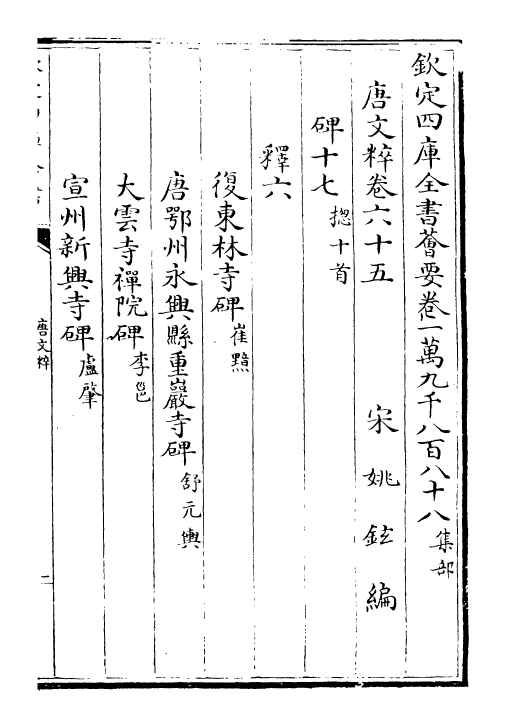 欽定四庫全書薈要卷一萬九千八百八十八集部
唐文粹卷六十五 宋 姚鉉 編
碑十七 揔十首
釋六
復東林寺碑 崔黯
唐鄂州永興縣重巖寺碑 舒元輿
大雲寺禪院碑 李邕
宣州新興寺碑 盧肇
唐文粹